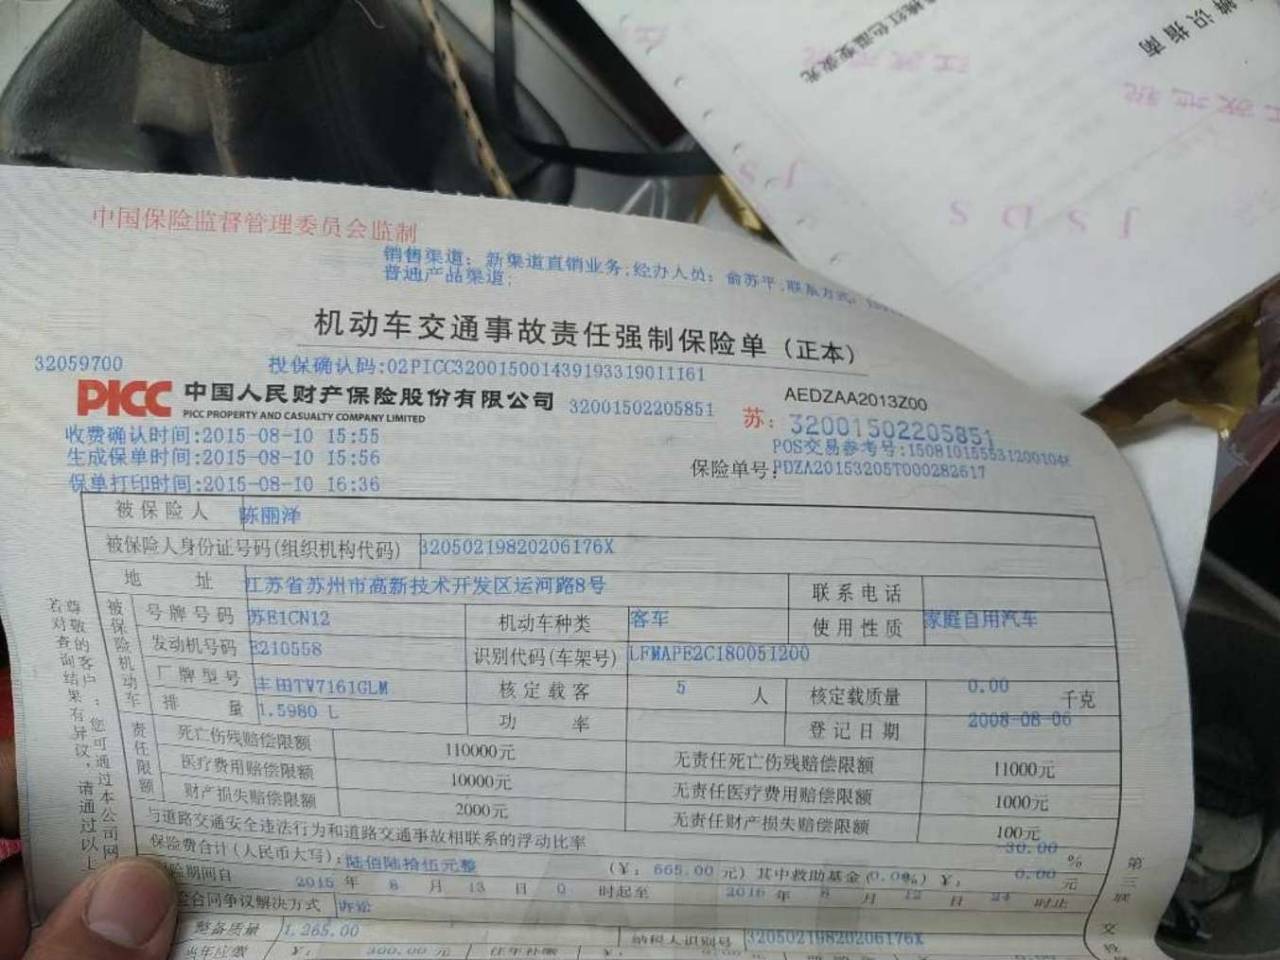 辨识指南
桃红色温变荧光
JSDS
中国保险监督管理委员会监制
销售渠道：新渠道直销业务;经办人员：俞苏平,联系方式：
普通产品渠道;
机动车交通事故责任强制保险单（正本）
32059700
投保确认码:02PICC320015001439193319011161
PICC 中国人民财产保险股份有限公司
PICC PROPERTY AND CASUALTY COMPANY LIMITED
32001502205851
AEDZAA2013Z00
苏：32001502205851
收费确认时间:2015-08-10 15:55
生成保单时间:2015-08-10 15:56
保单打印时间:2015-08-10 16:36
POS交易参考号:
保险单号:PDZA20153205T000282617
被保险人 陈丽洋
被保险人身份证号码(组织机构代码) 32050219820206176X
地 址 江苏省苏州市高新技术开发区运河路8号 联系电话
被保险机动车
号牌号码 苏E1CN12 机动车种类 客车 使用性质 家庭自用汽车
发动机号码 E210558 识别代码(车架号) LFMAPE2C180051200
厂牌型号 丰田TV7161GLM 核定载客 5 人 核定载质量 0.00 千克
排 量 1.5980 L 功 率 登记日期 2008-08-06
责任限额
死亡伤残赔偿限额 110000元 无责任死亡伤残赔偿限额 11000元
医疗费用赔偿限额 10000元 无责任医疗费用赔偿限额 1000元
财产损失赔偿限额 2000元 无责任财产损失赔偿限额 100元
与道路交通安全违法行为和道路交通事故相联系的浮动比率 -30.00 %
保险费合计(人民币大写)：陆佰陆拾伍元整 (¥：665.00 元) 其中救助基金(0.0%) ¥：0.00 元
险期间自 2015 年 8 月 13 日 0 时起至 2016 年 8 月 12 日 24 时止
合同争议解决方式 诉讼
整备质量 1,265.00 纳税人识别号 32050219820206176X
当年应缴 ¥： 300.00 元 往年补缴 ¥：
尊敬的客户：您可通过本公司网
若对查询结果有异议，请通过以上
第三联
交